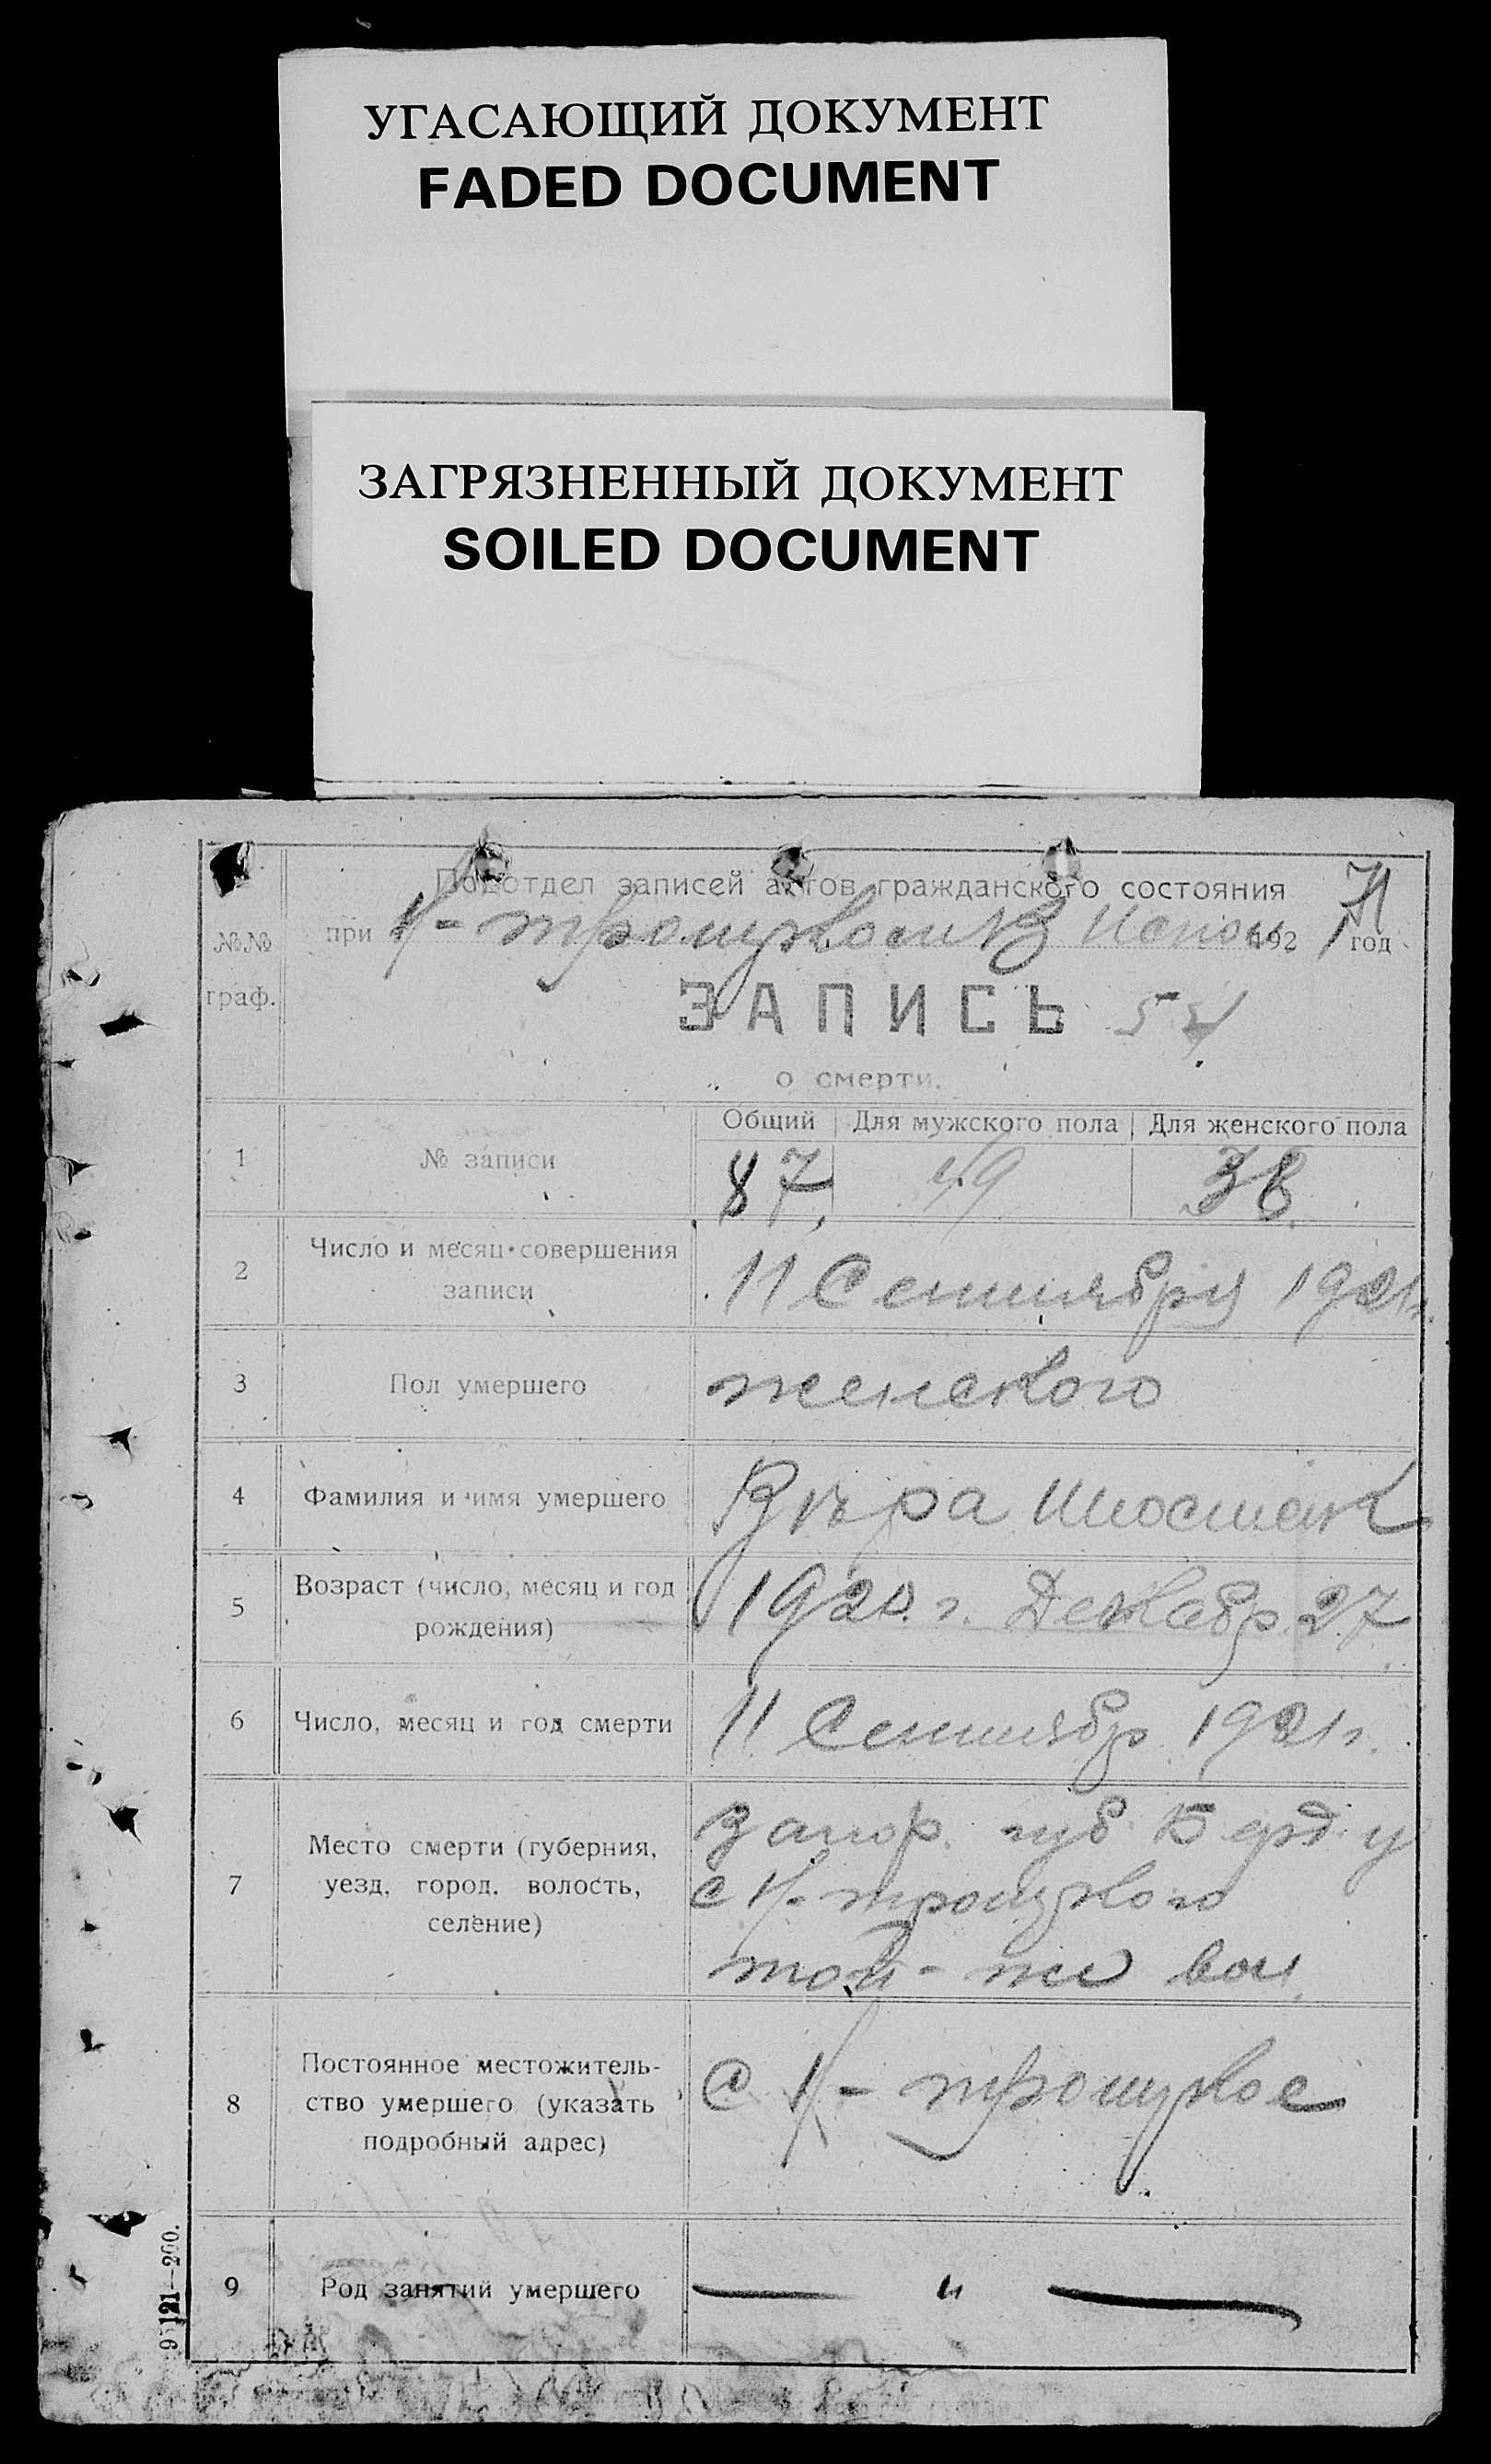 УГАСАЮЩИЙ ДОКУМЕНТ
FADED DOCUMENT
ЗАГРЯЗНЕННЫЙ ДОКУМЕНТ
SOILED DOCUMENT
Подотдел записей актов гражданского состояния
№№ граф.
при Н-троицком В Испол 1921 год
ЗАПИСЬ 54
о смерти.
Общий Для мужского пола Для женского пола
1 № записи 87. 49 38.
2 Число и месяц совершения 11 Сентября 1921г.
записи
3 Пол умершего женского
4 Фамилия и имя умершего Вѣра Шостак
5 Возраст (число, месяц и год 1920.г. Декабр. 27
рождения)
6 Число, месяц и год смерти 11 Сентябр 1921г.
7 Место смерти (губерния, Запор. губ. Берд. у
уезд, город, волость, с Н-троицкого
селение) той-же вол.
8 Постоянное местожитель-
ство умершего (указать с Н-троицкое
подробный адрес)
9 Род занятий умершего — " —
95121—200.